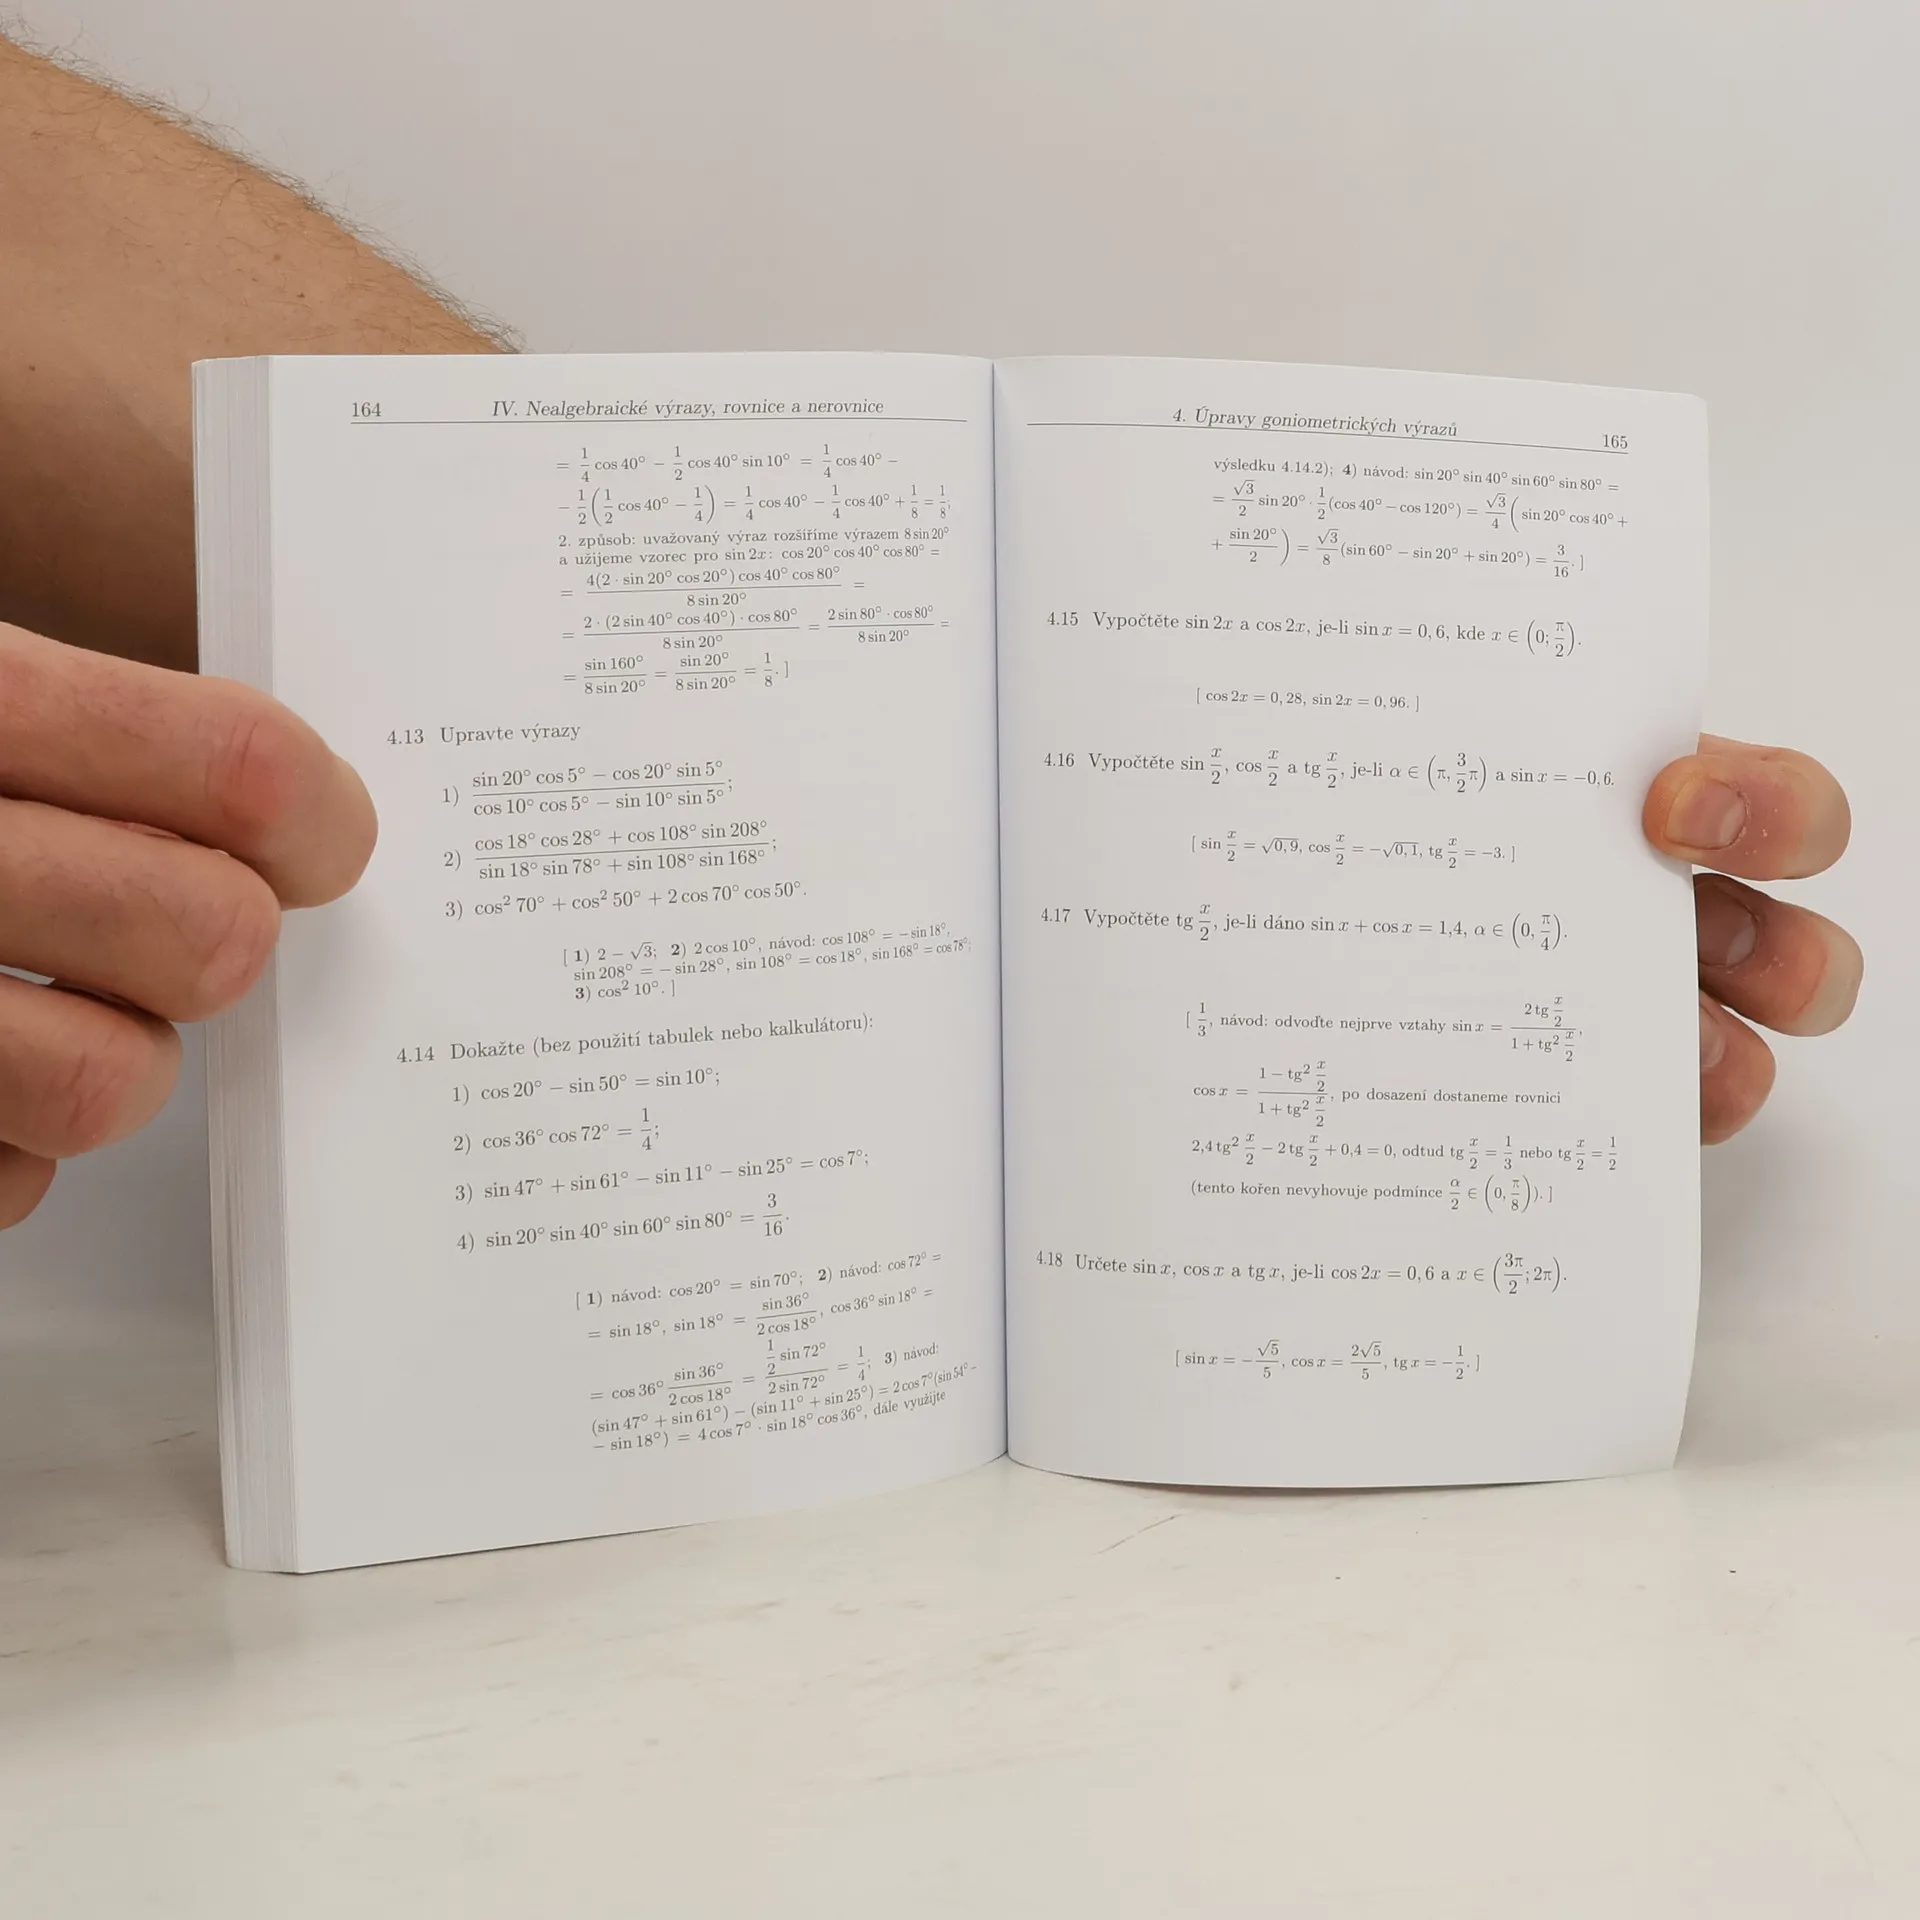 164 IV. Nealgebraické výrazy, rovnice a nerovnice
= 1/4 cos 40° − 1/2 cos 40° sin 10° = 1/4 cos 40° −
− 1/2 (1/2 cos 40° − 1/4) = 1/4 cos 40° − 1/4 cos 40° + 1/8 = 1/8;
2. způsob: uvažovaný výraz rozšíříme výrazem 8 sin 20°
a užijeme vzorec pro sin 2x: cos 20° cos 40° cos 80° =
= 4(2 · sin 20° cos 20°) cos 40° cos 80° / 8 sin 20° =
= 2 · (2 sin 40° cos 40°) · cos 80° / 8 sin 20° = 2 sin 80° · cos 80° / 8 sin 20° =
= sin 160° / 8 sin 20° = sin 20° / 8 sin 20° = 1/8. ]
4.13 Upravte výrazy
1) sin 20° cos 5° − cos 20° sin 5° / cos 10° cos 5° − sin 10° sin 5°;
2) cos 18° cos 28° + cos 108° sin 208° / sin 18° sin 78° + sin 108° sin 168°;
3) cos² 70° + cos² 50° + 2 cos 70° cos 50°.
[ 1) 2 − √3; 2) 2 cos 10°, návod: cos 108° = − sin 18°,
sin 208° = − sin 28°, sin 108° = cos 18°, sin 168° = cos 78°;
3) cos² 10°. ]
4.14 Dokažte (bez použití tabulek nebo kalkulátoru):
1) cos 20° − sin 50° = sin 10°;
2) cos 36° cos 72° = 1/4;
3) sin 47° + sin 61° − sin 11° − sin 25° = cos 7°;
4) sin 20° sin 40° sin 60° sin 80° = 3/16.
[ 1) návod: cos 20° = sin 70°; 2) návod: cos 72° =
= sin 18°, sin 18° = sin 36° / 2 cos 18°, cos 36° sin 18° =
= cos 36° sin 36° / 2 cos 18° = 1/2 sin 72° / 2 sin 72° = 1/4; 3) návod:
(sin 47° + sin 61°) − (sin 11° + sin 25°) = 2 cos 7°(sin 54° −
− sin 18°) = 4 cos 7° · sin 18° cos 36°, dále využijte
4. Úpravy goniometrických výrazů 165
výsledku 4.14.2); 4) návod: sin 20° sin 40° sin 60° sin 80° =
= √3/2 sin 20° · 1/2 (cos 40° − cos 120°) = √3/4 ( sin 20° cos 40° +
+ sin 20°/2 ) = √3/8 (sin 60° − sin 20° + sin 20°) = 3/16. ]
4.15 Vypočtěte sin 2x a cos 2x, je-li sin x = 0, 6, kde x ∈ (0; π/2).
[ cos 2x = 0, 28, sin 2x = 0, 96. ]
4.16 Vypočtěte sin x/2, cos x/2 a tg x/2, je-li α ∈ (π, 3/2 π) a sin x = −0, 6.
[ sin x/2 = √0, 9, cos x/2 = −√0, 1, tg x/2 = −3. ]
4.17 Vypočtěte tg x/2, je-li dáno sin x + cos x = 1,4, α ∈ (0, π/4).
[ 1/3, návod: odvoďte nejprve vztahy sin x = 2 tg x/2 / 1 + tg² x/2,
cos x = 1 − tg² x/2 / 1 + tg² x/2, po dosazení dostaneme rovnici
2,4 tg² x/2 − 2 tg x/2 + 0,4 = 0, odtud tg x/2 = 1/3 nebo tg x/2 = 1/2
(tento kořen nevyhovuje podmínce α/2 ∈ (0, π/8)). ]
4.18 Určete sin x, cos x a tg x, je-li cos 2x = 0, 6 a x ∈ (3π/2; 2π).
[ sin x = −√5/5, cos x = 2√5/5, tg x = −1/2. ]